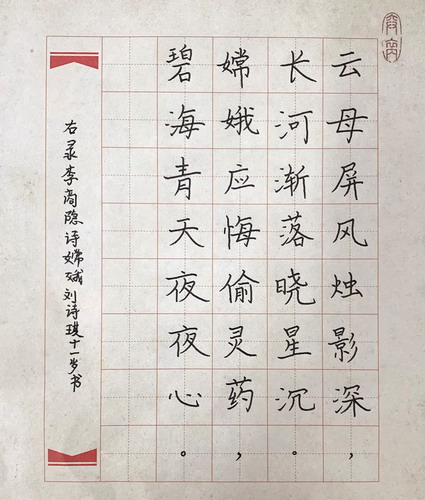 云母屏风烛影深，
长河渐落晓星沉。
嫦娥应悔偷灵药，
碧海青天夜夜心。
右录李商隐诗嫦娥 刘诗琪十一岁书